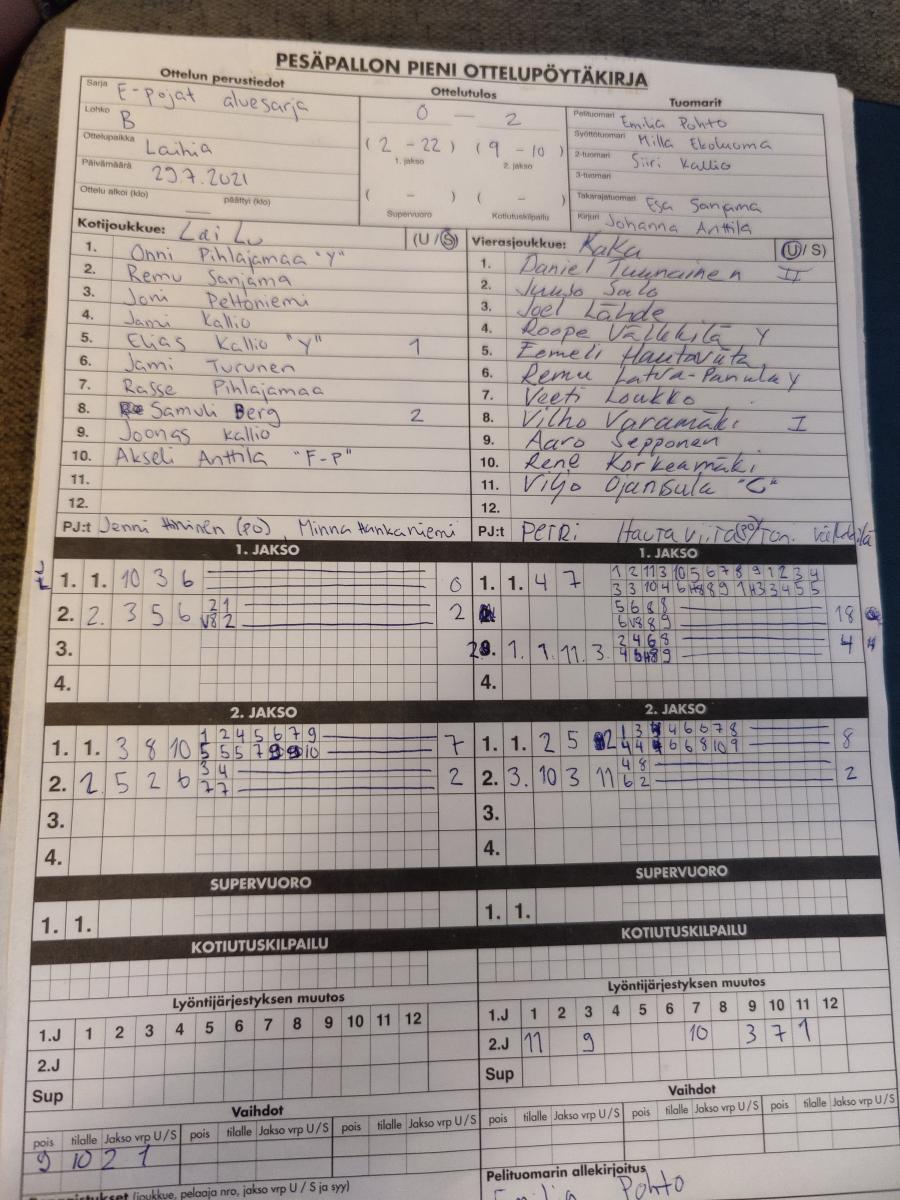 PESÄPALLON PIENI OTTELUPÖYTÄKIRJA
Ottelun perustiedot
Sarja E-pojat aluesarja
Lohko B
Ottelupaikka Laihia
Päivämäärä 29.7.2021
Ottelu alkoi (klo) päättyi (klo)
Ottelutulos
0 - 2
(2 - 22) (9 - 10)
1. jakso 2. jakso
( - ) ( - )
Supervuoro Kotiutuskilpailu
Tuomarit
Pelituomari Emilia Pohto
Syöttötuomari Milla Ekoluoma
2-tuomari Siiri Kallio
3-tuomari
Takarajatuomari Esa Sanjama
Kirjuri Johanna Anttila
Kotijoukkue: LaiLu (U/S)
1. Onni Pihlajamaa "Y"
2. Remu Sanjama
3. Joni Peltoniemi
4. Jami Kallio
5. Elias Kallio "Y" 1
6. Jami Turunen
7. Rasse Pihlajamaa
8. Samuli Berg 2
9. Joonas Kallio
10. Akseli Anttila "F-P"
11.
12.
PJ:t Jenni (PO) Minna Hankaniemi
Vierasjoukkue: KaKa (U/S)
1. Daniel Tuunainen II
2. Juuso Salo
3. Joel Lähde
4. Roope Välkkilä Y
5. Eemeli Hautaviita
6. Remu Latva-Panula Y
7. Veeti Loukko
8. Vilho Varamäki I
9. Aaro Sepponen
10. Rene Korkeamäki
11. Viljo Ojansula "C"
12.
PJ:t Petri Hautaviita (PO) Välkkilä
1. JAKSO
1. 1. 10 3 6 0
2. 2. 3 5 6 2 1 2
V8 2
3.
4.
1. JAKSO
1. 1. 4 7 1 2 11 3 10 5 6 7 8 9 1 2 3 4
5 6 8 8 18
3. 1. 1. 11. 3. 2 4 6 8 4
4.
2. JAKSO
1. 1. 3 8 10 1 2 4 5 6 7 9 7
2. 2. 5 2 6 3 4 2
7 7
3.
4.
2. JAKSO
1. 1. 2 5 8
2. 3. 10 3 11 4 8 2
6 2
3.
4.
SUPERVUORO
1. 1.
SUPERVUORO
1. 1.
KOTIUTUSKILPAILU
KOTIUTUSKILPAILU
Lyöntijärjestyksen muutos
1.J 1 2 3 4 5 6 7 8 9 10 11 12
2.J
Sup
Lyöntijärjestyksen muutos
1.J 1 2 3 4 5 6 7 8 9 10 11 12
2.J 11 9 10 3 7 1
Sup
Vaihdot
pois tilalle Jakso vrp U/S pois tilalle Jakso vrp U/S pois tilalle Jakso vrp U/S
9 10 2 1
Vaihdot
pois tilalle Jakso vrp U/S pois tilalle Jakso vrp U/S pois tilalle Jakso vrp U/S
(joukkue, pelaaja nro, jakso vrp U / S ja syy)
Pelituomarin allekirjoitus
Emilia Pohto